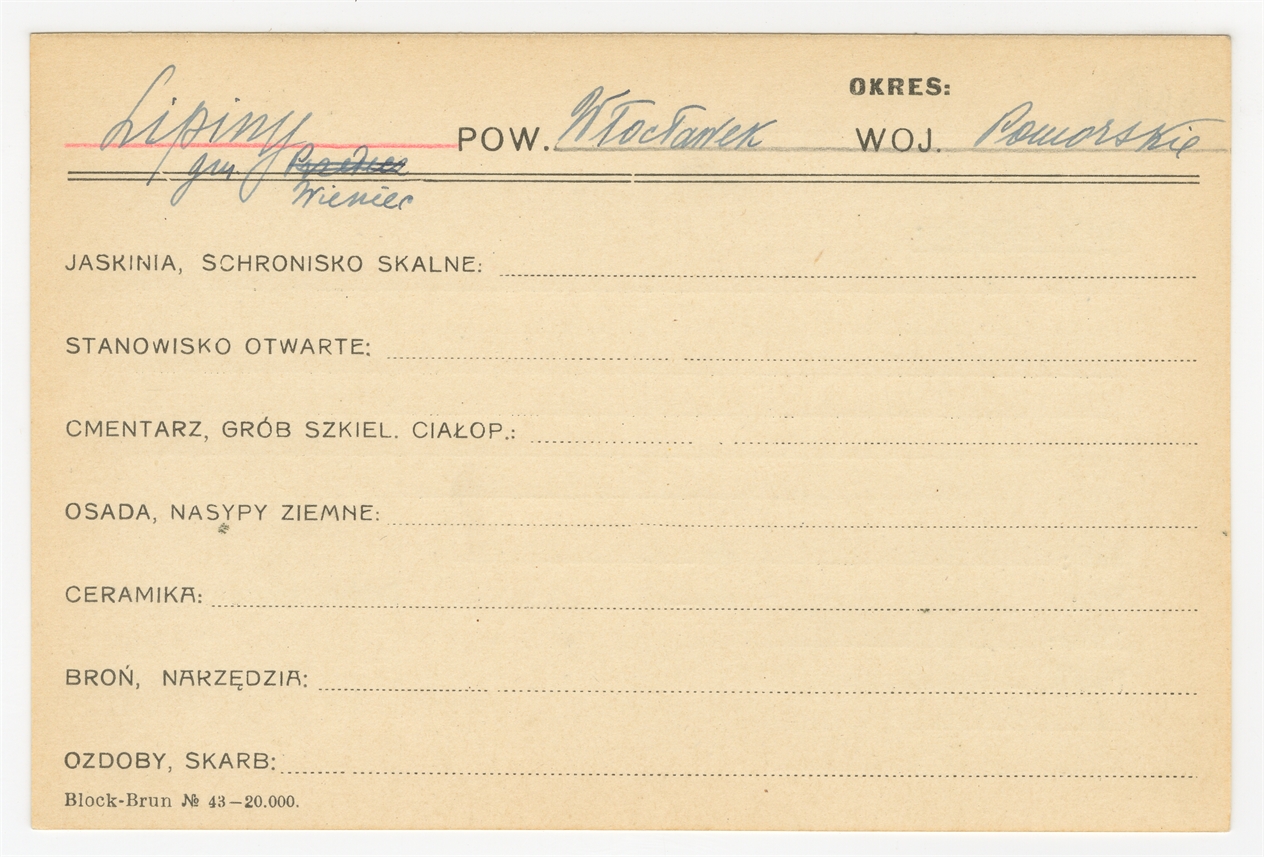 OKRES:
Lipiny POW. Włocławek WOJ. Pomorskie
gm.
Wieniec
JASKINIA, SCHRONISKO SKALNE:
STANOWISKO OTWARTE:
CMENTARZ, GRÓB SZKIEL. CIAŁOP.:
OSADA, NASYPY ZIEMNE:
CERAMIKA:
BROŃ, NARZĘDZIA:
OZDOBY, SKARB:
Block-Brun № 43—20.000.